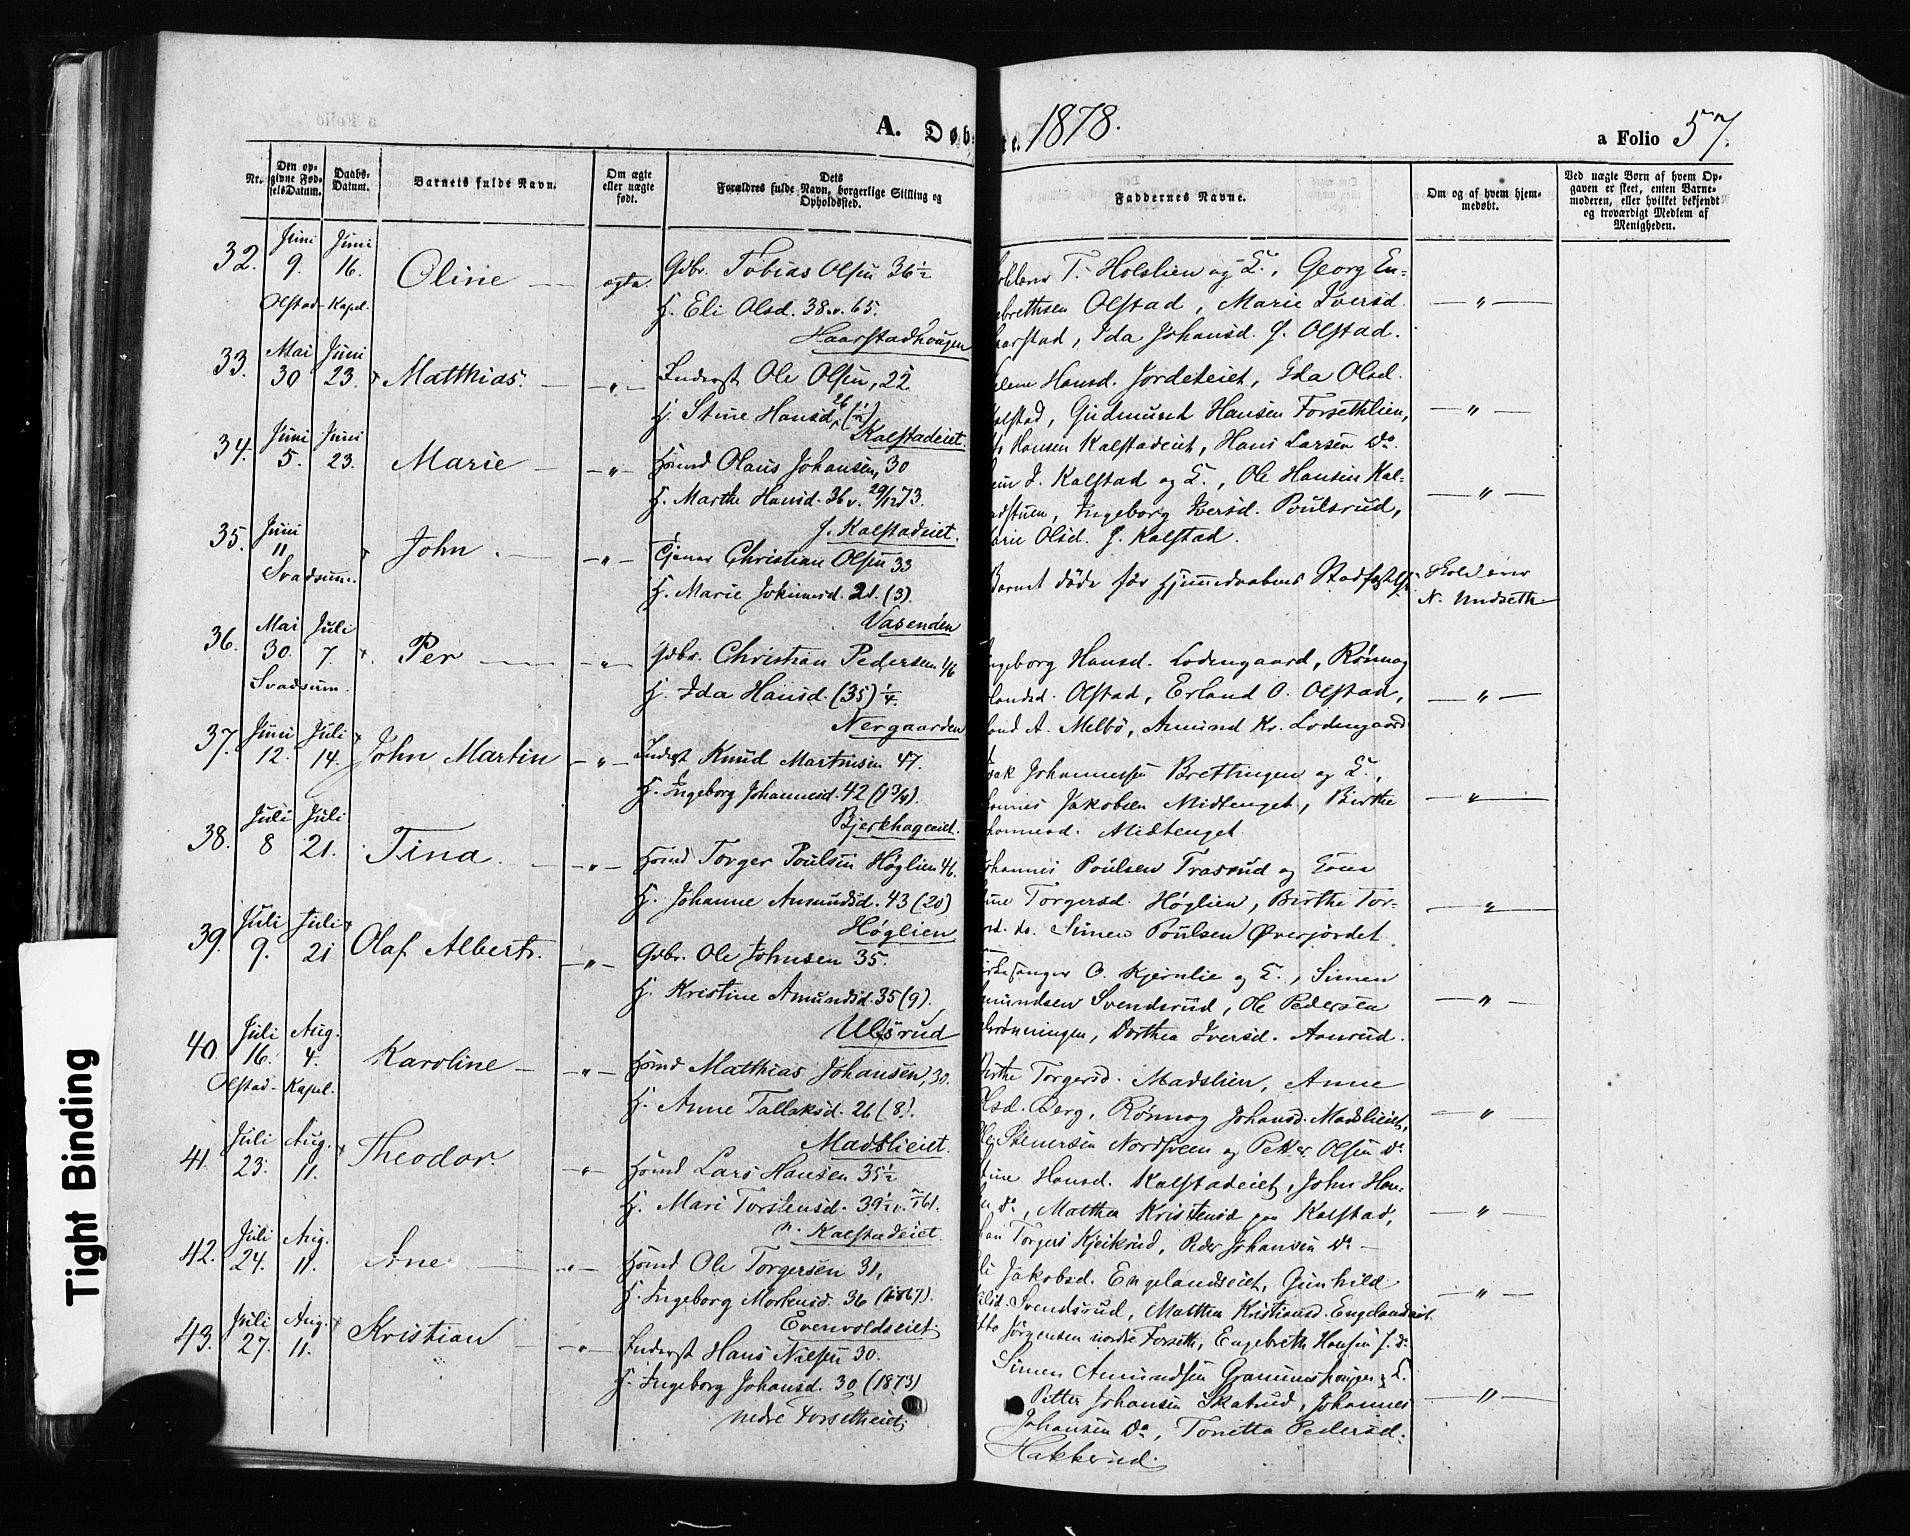 A. Døb
te. 1878.
a Folio 57.
Nr.
Den op-
givne Fød-
selsDatum.
Daabs-
Datum.
Barnets fulde Navn.
Om ægte
eller uægte
født.
Dets
Forældres fulde Navn, borgerlige Stilling og
Opholdssted.
Faddernes Navne.
Om og af hvem hjem-
medøbt.
Ved uægte Børn af hvem Op-
gaven er skeet, enten Barne-
moderen, eller hvilket bekjendt
og troværdigt Medlem af
Menigheden.
32. Juni 9. Juni 16. Oline — ægte. Gdbr. Tobias Olsen 36 1/2
Olstad Kapel. H. Eli Olsd. 38 v. 65.
Haarstadhougen
T. Holslien og E., Georg En-
brethsen Olstad, Marie Iversd. — " —
arstad, Ida Johansd. J. Olstad.
33. Mai 30 Juni 23. Matthias. — — " — Inderst Ole Olsen, 22
H. Stine Hansd. 26 (1/2)
Kalstadeiet.
Hansd. Jordeteiet, Eda Olsd.
alstad, Gudmund Hansen Forsethlien, — " —
Hansen Kalstadeiet, Hans Larsen Do.
34. Juni 5. Juni 23. Marie — — " — Hsmd Olaus Johansen, 30
H. Marthe Hansd. 36 v. 29/12 73.
J. Kalstadeiet.
J. Kalstad og E., Ole Hansen Kal-
adstuen, Ingeborg Iversd. Poulsrud, — " —
arie Olsd. J. Kalstad.
35. Juni 11 John. — — " — Tjener Christian Olsen 33
Svadsum. H. Marie Jokumsd. 21. (3)
Vasenden
Barnet døde før Hjemmedaabens Stadfæstelse
Skolelærer
N. Undseth
36. Mai 30. Juli 7. Per — — " — Gdbr. Christian Pedersen 46
Svadsum. H. Ida Hansd. (35) 1/4
Nergaarden
ngeborg Hansd. Lodengaard, Rønnog
landsd. Olstad, Erland O. Olstad, — " —
A. Melbö, Amund Kr. Lodengaard
37. Juni 12. Juli 14. John Martin — " — Inderst Knud Martinsen 47.
H. Ingeborg Johannesd. 42 (1 3/4).
Bjerkhageeiet.
Johannessen Brettingen og E.,
hannes Jakobsen Midtenget, Birthe — " —
hannesd. Midtenget.
38. Juli 8 Juli 21. Tina. — — " — Hsmd Torger Poulsen Høglien 46.
H. Johanne Amundsd. 43 (20)
Høglien
ohannes Poulsen Trasrud og Kone
Torgersd. Høglien, Birthe Tor- — " —
do. Simen Poulsen Øverjordet.
39. Juli 9. Juli 21 Olaf Albert. — " — Gdbr. Ole Johnsen 35.
H. Kristine Amundsd. 35 (9).
Ulsrud
irkesanger O. Kjernlie og E., Simen
mundsen Svendsrud, Ole Pedersen — " —
Dorthea Iversd. Aansrud.
40. Juli 16. Aug. 4. Karoline — — " — Hsmd Matthias Johansen, 30.
Olstad Kapel. H. Anne Tallaksd. 26 (8).
Madslieiet.
Birthe Torgersd. Madslien, Anne
lsd. Berg, Rønnog Johansd. Madslieiet, — " —
Stenersen Nordsveen og Petter Olsen Do
41. Juli 23. Aug. 11. Theodor. — " — Hsmd Lars Hansen 35 1/2
H. Mari Torstensd. 39 1/2 v. 61.
n. Kalstadeiet.
tine Hansd. Kalstadeiet, John Han-
Do, Matthea Kristensd paa Kalstad, — " —
Torgers Kjeiksrud, Peder Johansen Do —
42. Juli 24. Aug. 11. Ane — — " — Hsmd Ole Torgersen 31,
H. Ingeborg Mortensd. 36 (1867).
Evenvoldseiet.
li Jakobsd. Engelandseiet, Gunhild
Svendsrud, Matthea Kristiansd. Engelandseiet — " —
Jørgensen nordre Forseth, Engebreth Hansen J. Do
43. Juli 27. Aug. 11. Kristian — — " — Inderst Hans Nilsen 30.
H. Ingeborg Johansd. 30 (1873)
nedre Forsetheiet.
Simen Amundsen og E.
Petter Johansen Skatrud, Johannes — " —
Johansen Do, Tonetta Pedersd.
Hakkerud.
Tight Binding